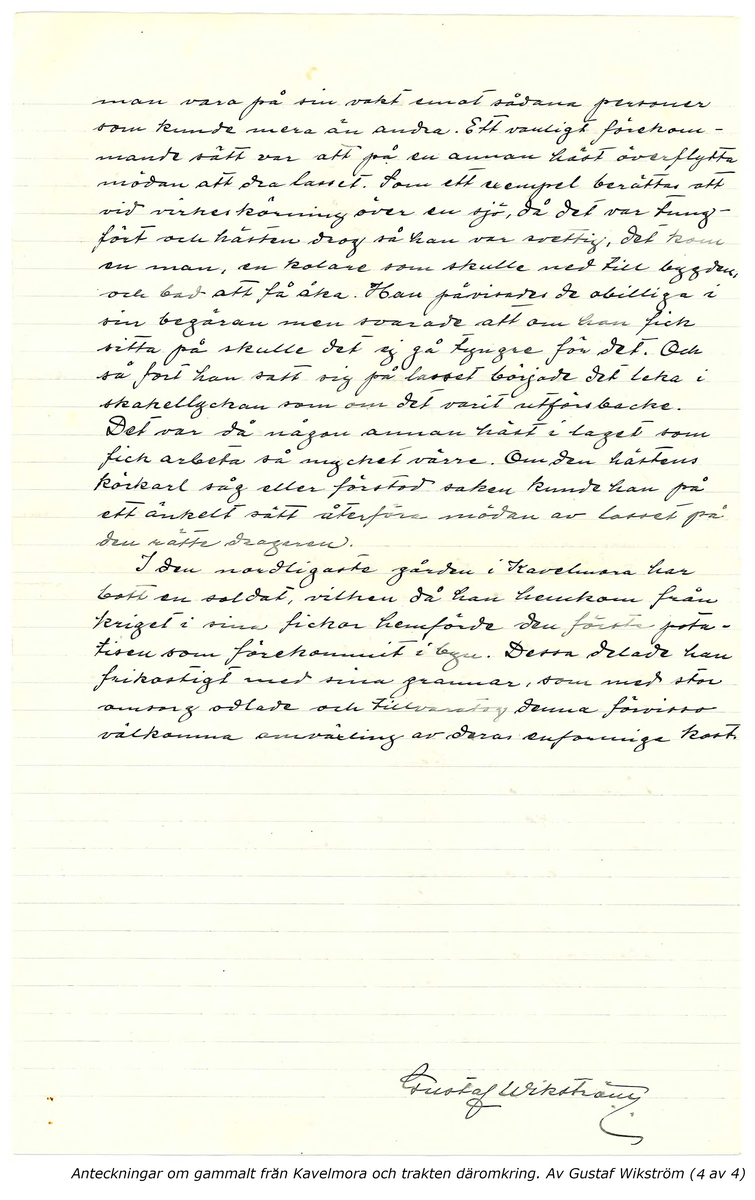 man vara på sin vakt emot sådana personer
som kunde mera än andra. Ett vanligt förekom-
mande sätt var att på en annan häst överflytta
mödan att dra lasset. Som ett exempel berättas att
vid virkeskörning över en sjö, då det var tung-
fört och hästen drog så han var svettig, det kom
en man, en kolare som skulle ned till bygden,
och bad att få åka. Han påvisades de obilliga i
sin begäran men svarade att om han fick
sitta på skulle det ej gå tyngre för det. Och
så fort han satt sig på lasset började det leka i
skakellyckan som om det varit utförsbacke.
Det var då någon annan häst i laget som
fick arbeta så mycket värre. Om den hästens
körkarl såg eller förstod saken kunde han på
ett änkelt sätt återföra mödan av lasset på
den rätte dragaren.
I den nordligaste gården i Kavelmora har
bott en soldat, vilken då han hemkom från
kriget i sina fickor hemförde den första pota-
tisen som förekommit i byn. Dessa delade han
frikostigt med sina grannar, som med stor
omsorg odlade och tillvaratog denna förvisso
välkomna omväxling av deras enformiga kost.
Gustaf Wikström
Anteckningar om gammalt från Kavelmora och trakten däromkring. Av Gustaf Wikström (4 av 4)